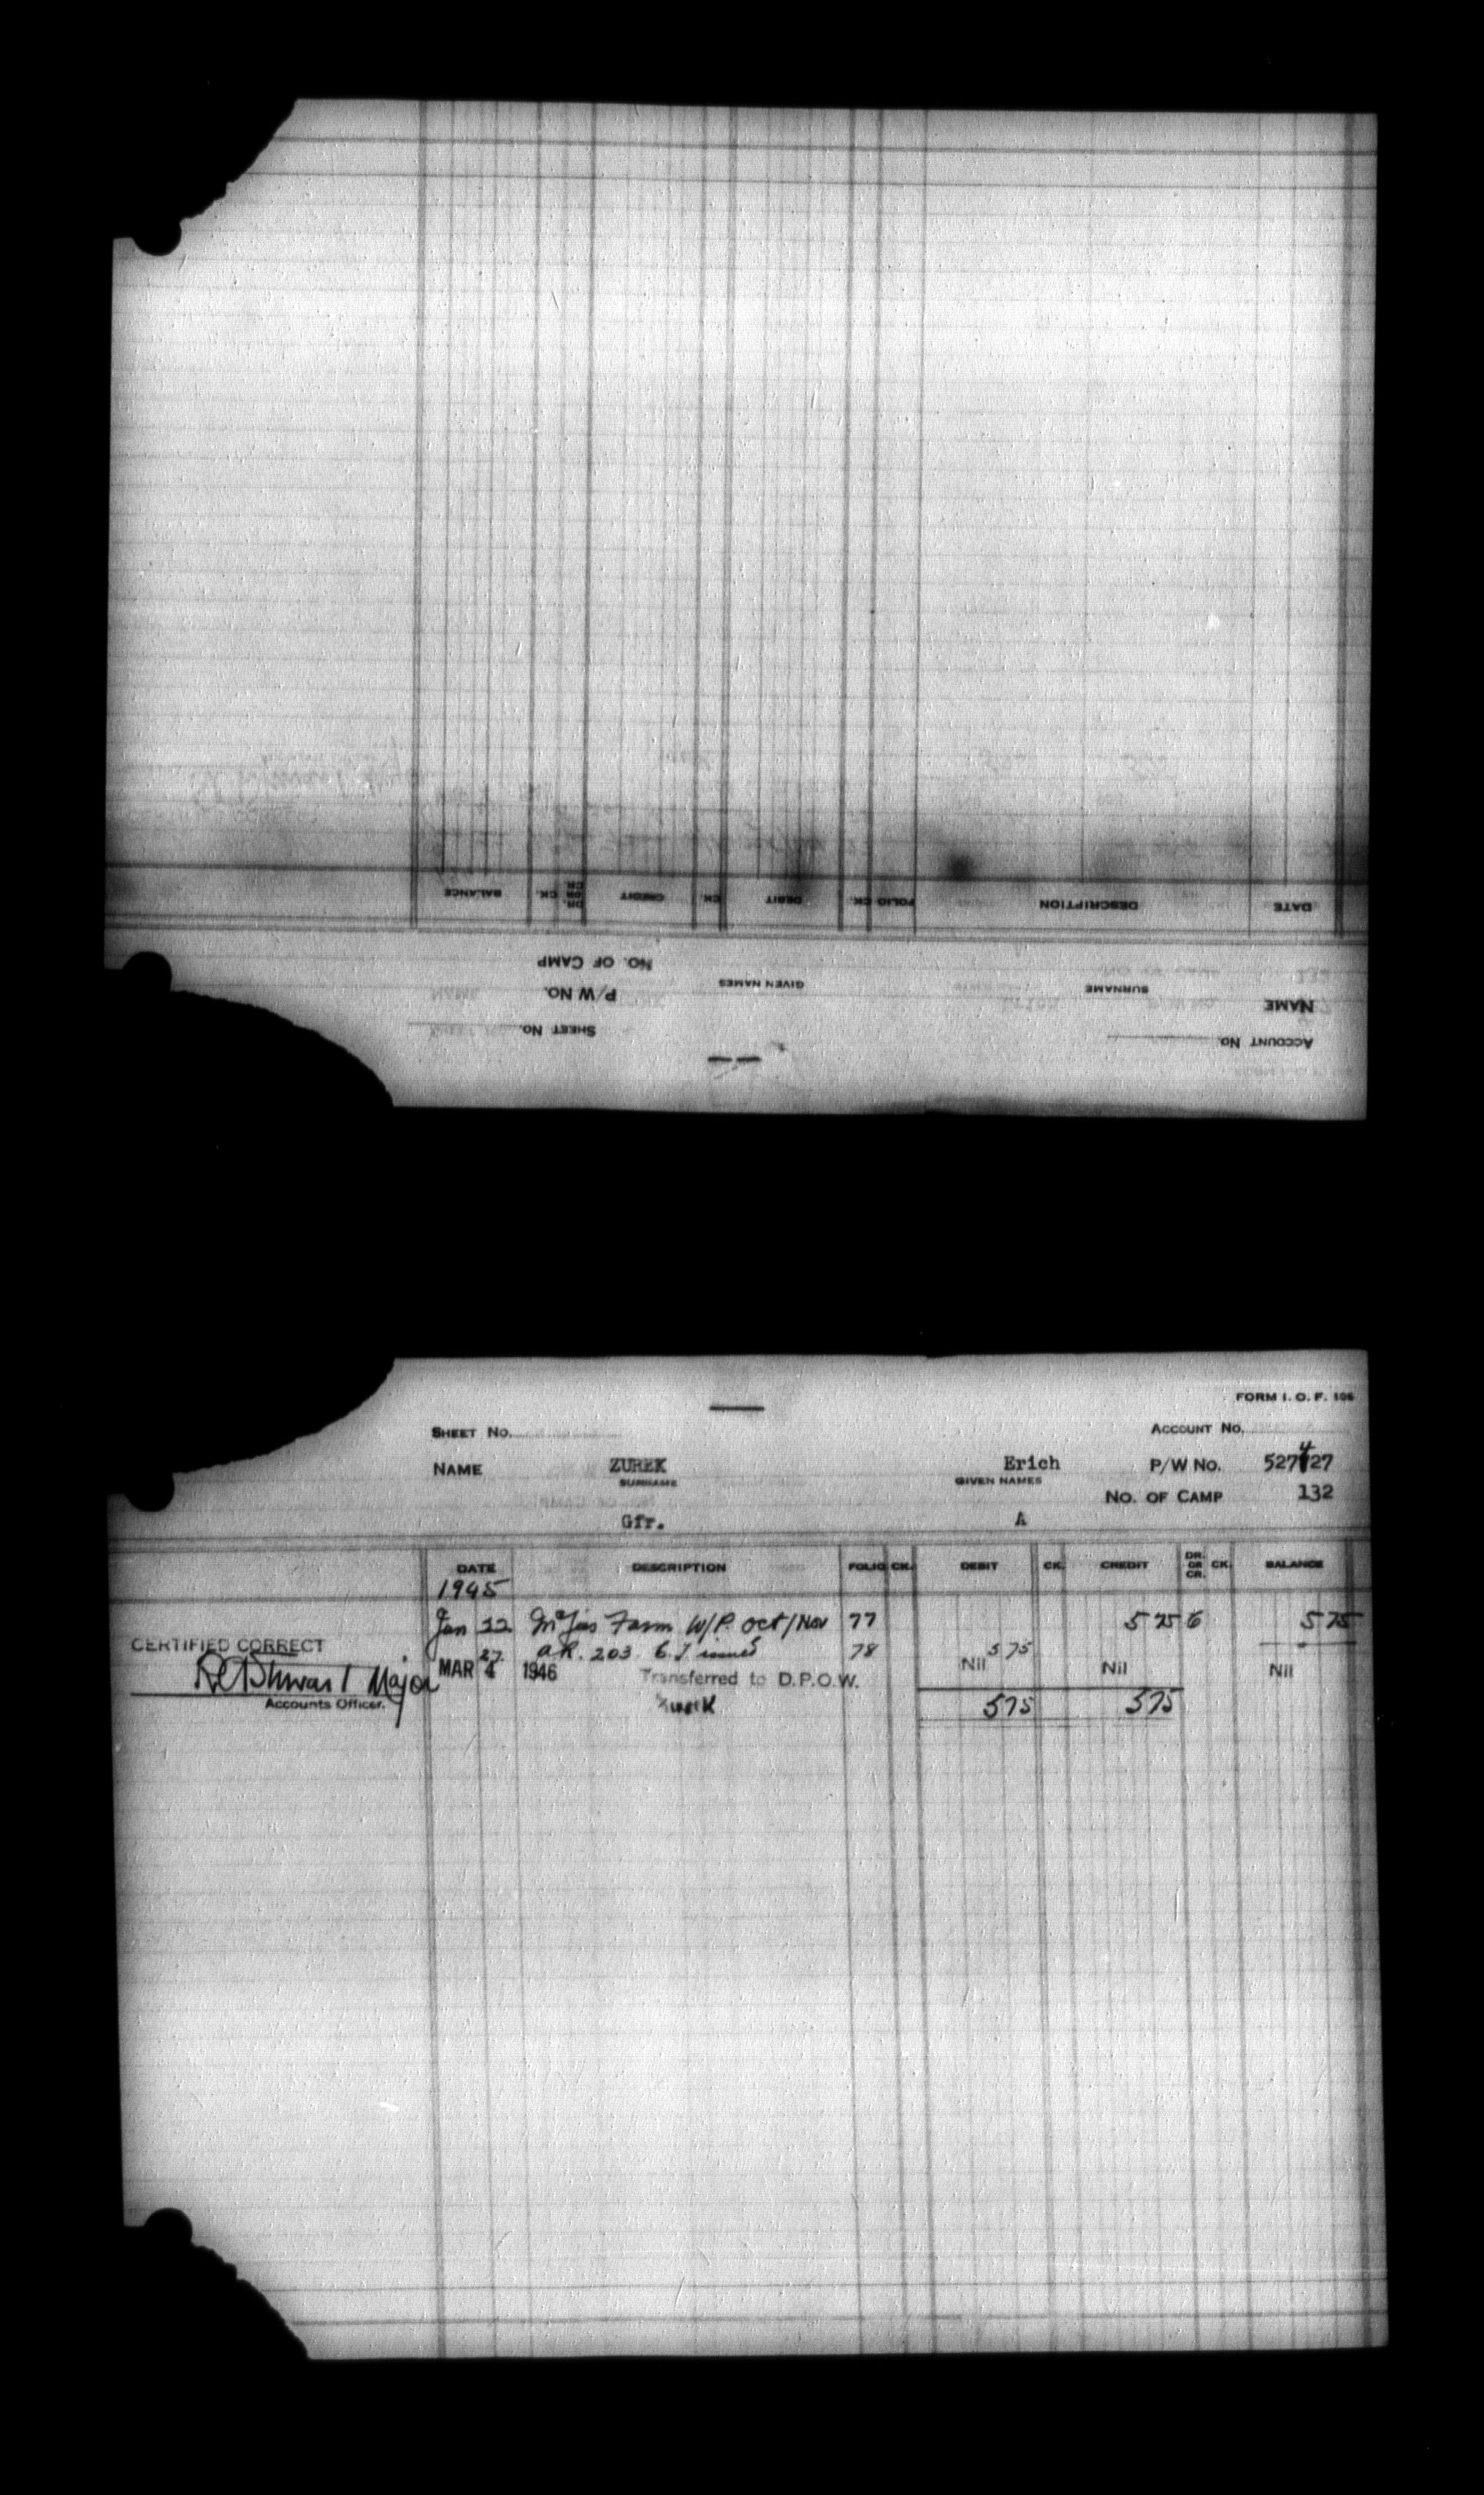 BALANCE CK. DR. OR CR. CREDIT CK. DEBIT CK. FOLIO DESCRIPTION DATE
NO. OF CAMP
GIVEN NAMES SURNAME
P/W NO. NAME
SHEET NO. ACCOUNT NO.
FORM I. O. F. 106
SHEET NO. ACCOUNT NO.
NAME ZUREK Erich P/W NO. 527427
SURNAME GIVEN NAMES
NO. OF CAMP 132
Gfr. A
DATE DESCRIPTION FOLIO CK. DEBIT CK. CREDIT DR. OR CR. CK. BALANCE
1945
Jan 22 Farm W/P. Oct/Nov 77 5 75 5 75
CERTIFIED CORRECT
27 A.R. 203 issued 78 5 75
MAR 4 1946 Transferred to D.P.O.W. Nil Nil Nil
Major
Accounts Officer.
575 575